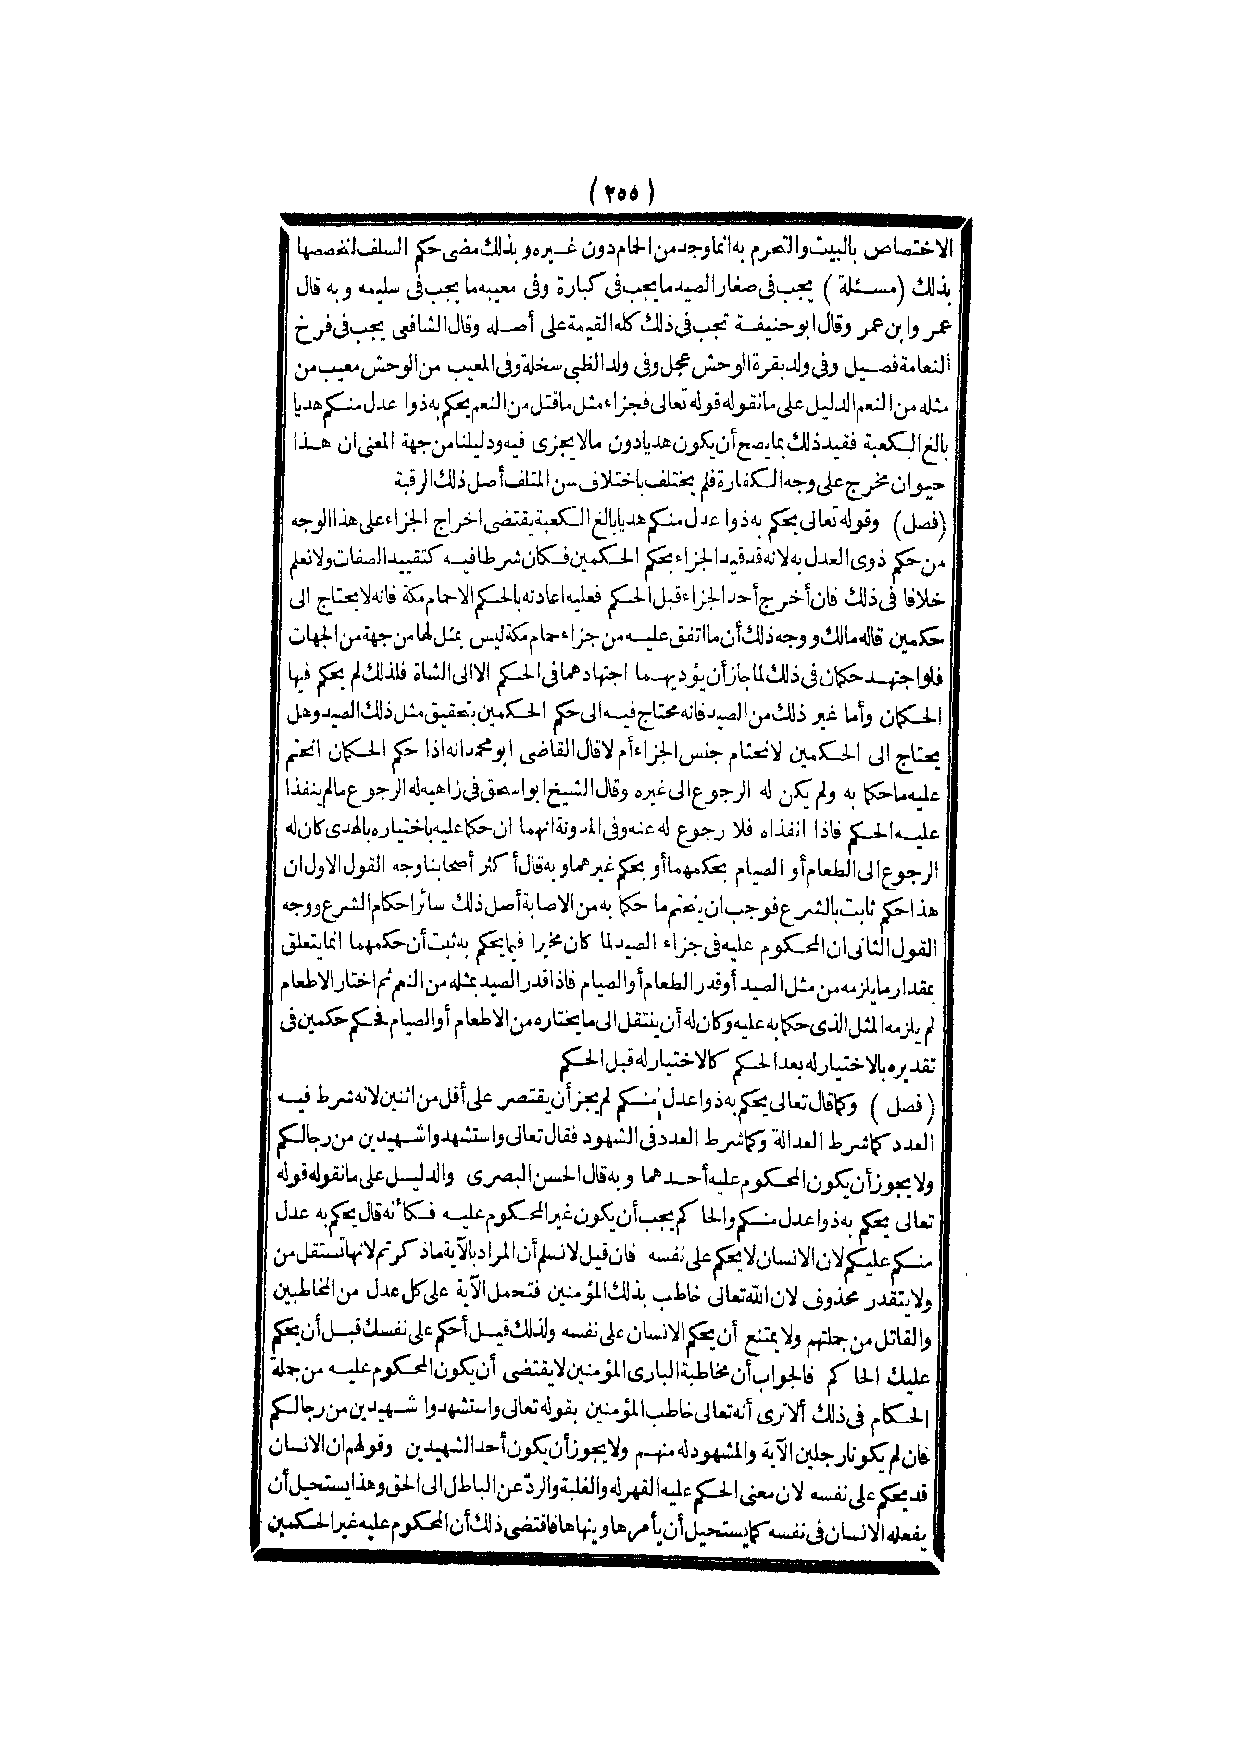 (٢٥٥)
الاختصاص بالبيت والتحرم به انما وجد من الحمام دون غيره وبذلك مضى حكم السلف لتخصصها
بذلك (مسئلة) يجب فى صغار الصيد ما يجب فى كبارة وفى معيبه ما يجب فى سليمه وبه قال
عمر وابن عمر وقال ابو حنيفة تجب فى ذلك كله القيمة على أصله وقال الشافعى يجب فى فرخ
النعامة فصيل وفى ولد بقرة الوحش عجل وفى ولد الظبى سخلة وفى المعيب من الوحش معيب من
مثله من النعم الدليل على ما نقوله قوله تعالى فجزاء مثل ما قتل من النعم يحكم به ذوا عدل منكم هديا
بالغ الكعبة فقيد ذلك بما يصح أن يكون هديا دون ما لا يجزى فيه ودليلنا من جهة المعنى ان هذا
حيوان مخرج على وجه الكفارة فلم يختلف باختلاف سن المتلف أصل ذلك الرقبة
(فصل) وقوله تعالى يحكم به ذوا عدل منكم هديا بالغ الكعبة يقتضى اخراج الجزاء على هذا الوجه
من حكم ذوى العدل به لانه قد قيد الجزاء بحكم الحكمين فكان شرطا فيه كتقييد الصفات ولا نعلم
خلافا فى ذلك فان أخرج أحد الجزاء قبل الحكم فعليه اعادته بالحكم الاحمام مكة فانه لا يحتاج الى
حكمين قاله مالك ووجه ذلك أن ما اتفق عليه من جزاء حمام مكة ليس بمثل لها من جهة من الجهات
فلو اجتهد حكمان فى ذلك لما جاز أن يؤديهما اجتهادهما فى الحكم الا الى الشاة فلذلك لم يحكم فيها
الحكمان وأما غير ذلك من الصيد فانه محتاج فيه الى حكم الحكمين بتحقيق مثل ذلك الصيد وهل
يحتاج الى الحكمين لانحتام جنس الجزاء أم لا قال القاضى ابو محمد انه اذا حكم الحكمان انحتم
عليه ما حكما به ولم يكن له الرجوع الى غيره وقال الشيخ ابو اسحق فى زاهيه له الرجوع مالم ينفذا
عليه الحكم فاذا انفذاه فلا رجوع له عنه وفى المدونة انهما ان حكما عليه باختياره بالهدى كان له
الرجوع الى الطعام أو الصيام بحكمهما أو بحكم غيرهما وبه قال أكثر أصحابنا وجه القول الاول ان
هذا حكم ثابت بالشرع فوجب ان ينحتم ما حكما به من الاصابة أصل ذلك سائر احكام الشرع ووجه
القول الثانى ان المحكوم عليه فى جزاء الصيد لما كان مخيرا فيما يحكم به ثبت أن حكمهما انما يتعلق
بمقدار ما يلزمه من مثل الصيد أو قدر الطعام أو الصيام فاذا قدر الصيد بمثله من النعم ثم اختار الاطعام
لم يلزمه المثل الذى حكما به عليه وكان له أن ينتقل الى ما يختاره من الاطعام أو الصيام فحكم حكمين فى
تقديره بالاختيار له بعد الحكم كالاختيار له قبل الحكم
(فصل) وكما قال تعالى يحكم به ذوا عدل منكم لم يجز أن يقتصر على أقل من اثنين لانه شرط فيه
العدد كما شرط العدالة وكما شرط العدد فى الشهود فقال تعالى واستشهدوا شهيدين من رجالكم
ولا يجوز أن يكون المحكوم عليه أحدهما وبه قال الحسن البصرى والدليل على ما نقوله قوله
تعالى يحكم به ذوا عدل منكم والحاكم يجب أن يكون غير المحكوم عليه فكأنه قال يحكم به عدل
منكم عليكم لان الانسان لا يحكم على نفسه فان قيل لا نسلم أن المراد بالآية ما ذكرتم لانها تستقل من
ولا يتقدر محذوف لان الله تعالى خاطب بذلك المؤمنين فتحمل الآية على كل عدل من المخاطبين
والقاتل من جملتهم ولا يمتنع أن يحكم الانسان على نفسه ولذلك قيل أحكم على نفسك قبل أن يحكم
عليك الحاكم فالجواب أن مخاطبة البارى المؤمنين لا يقتضى أن يكون المحكوم عليه من جملة
الحكام فى ذلك ألا ترى أنه تعالى خاطب المؤمنين بقوله تعالى واستشهدوا شهيدين من رجالكم
فان لم يكونا رجلين الآية والمشهود له منهم ولا يجوز أن يكون أحد الشهيدين وقولهم ان الانسان
قد يحكم على نفسه لان معنى الحكم عليه القهر له والغلبة والردّ عن الباطل الى الحق وهذا يستحيل أن
يفعله الانسان فى نفسه كما يستحيل أن يأمرها وينهاها فاقتضى ذلك أن المحكوم عليه غير الحكمين